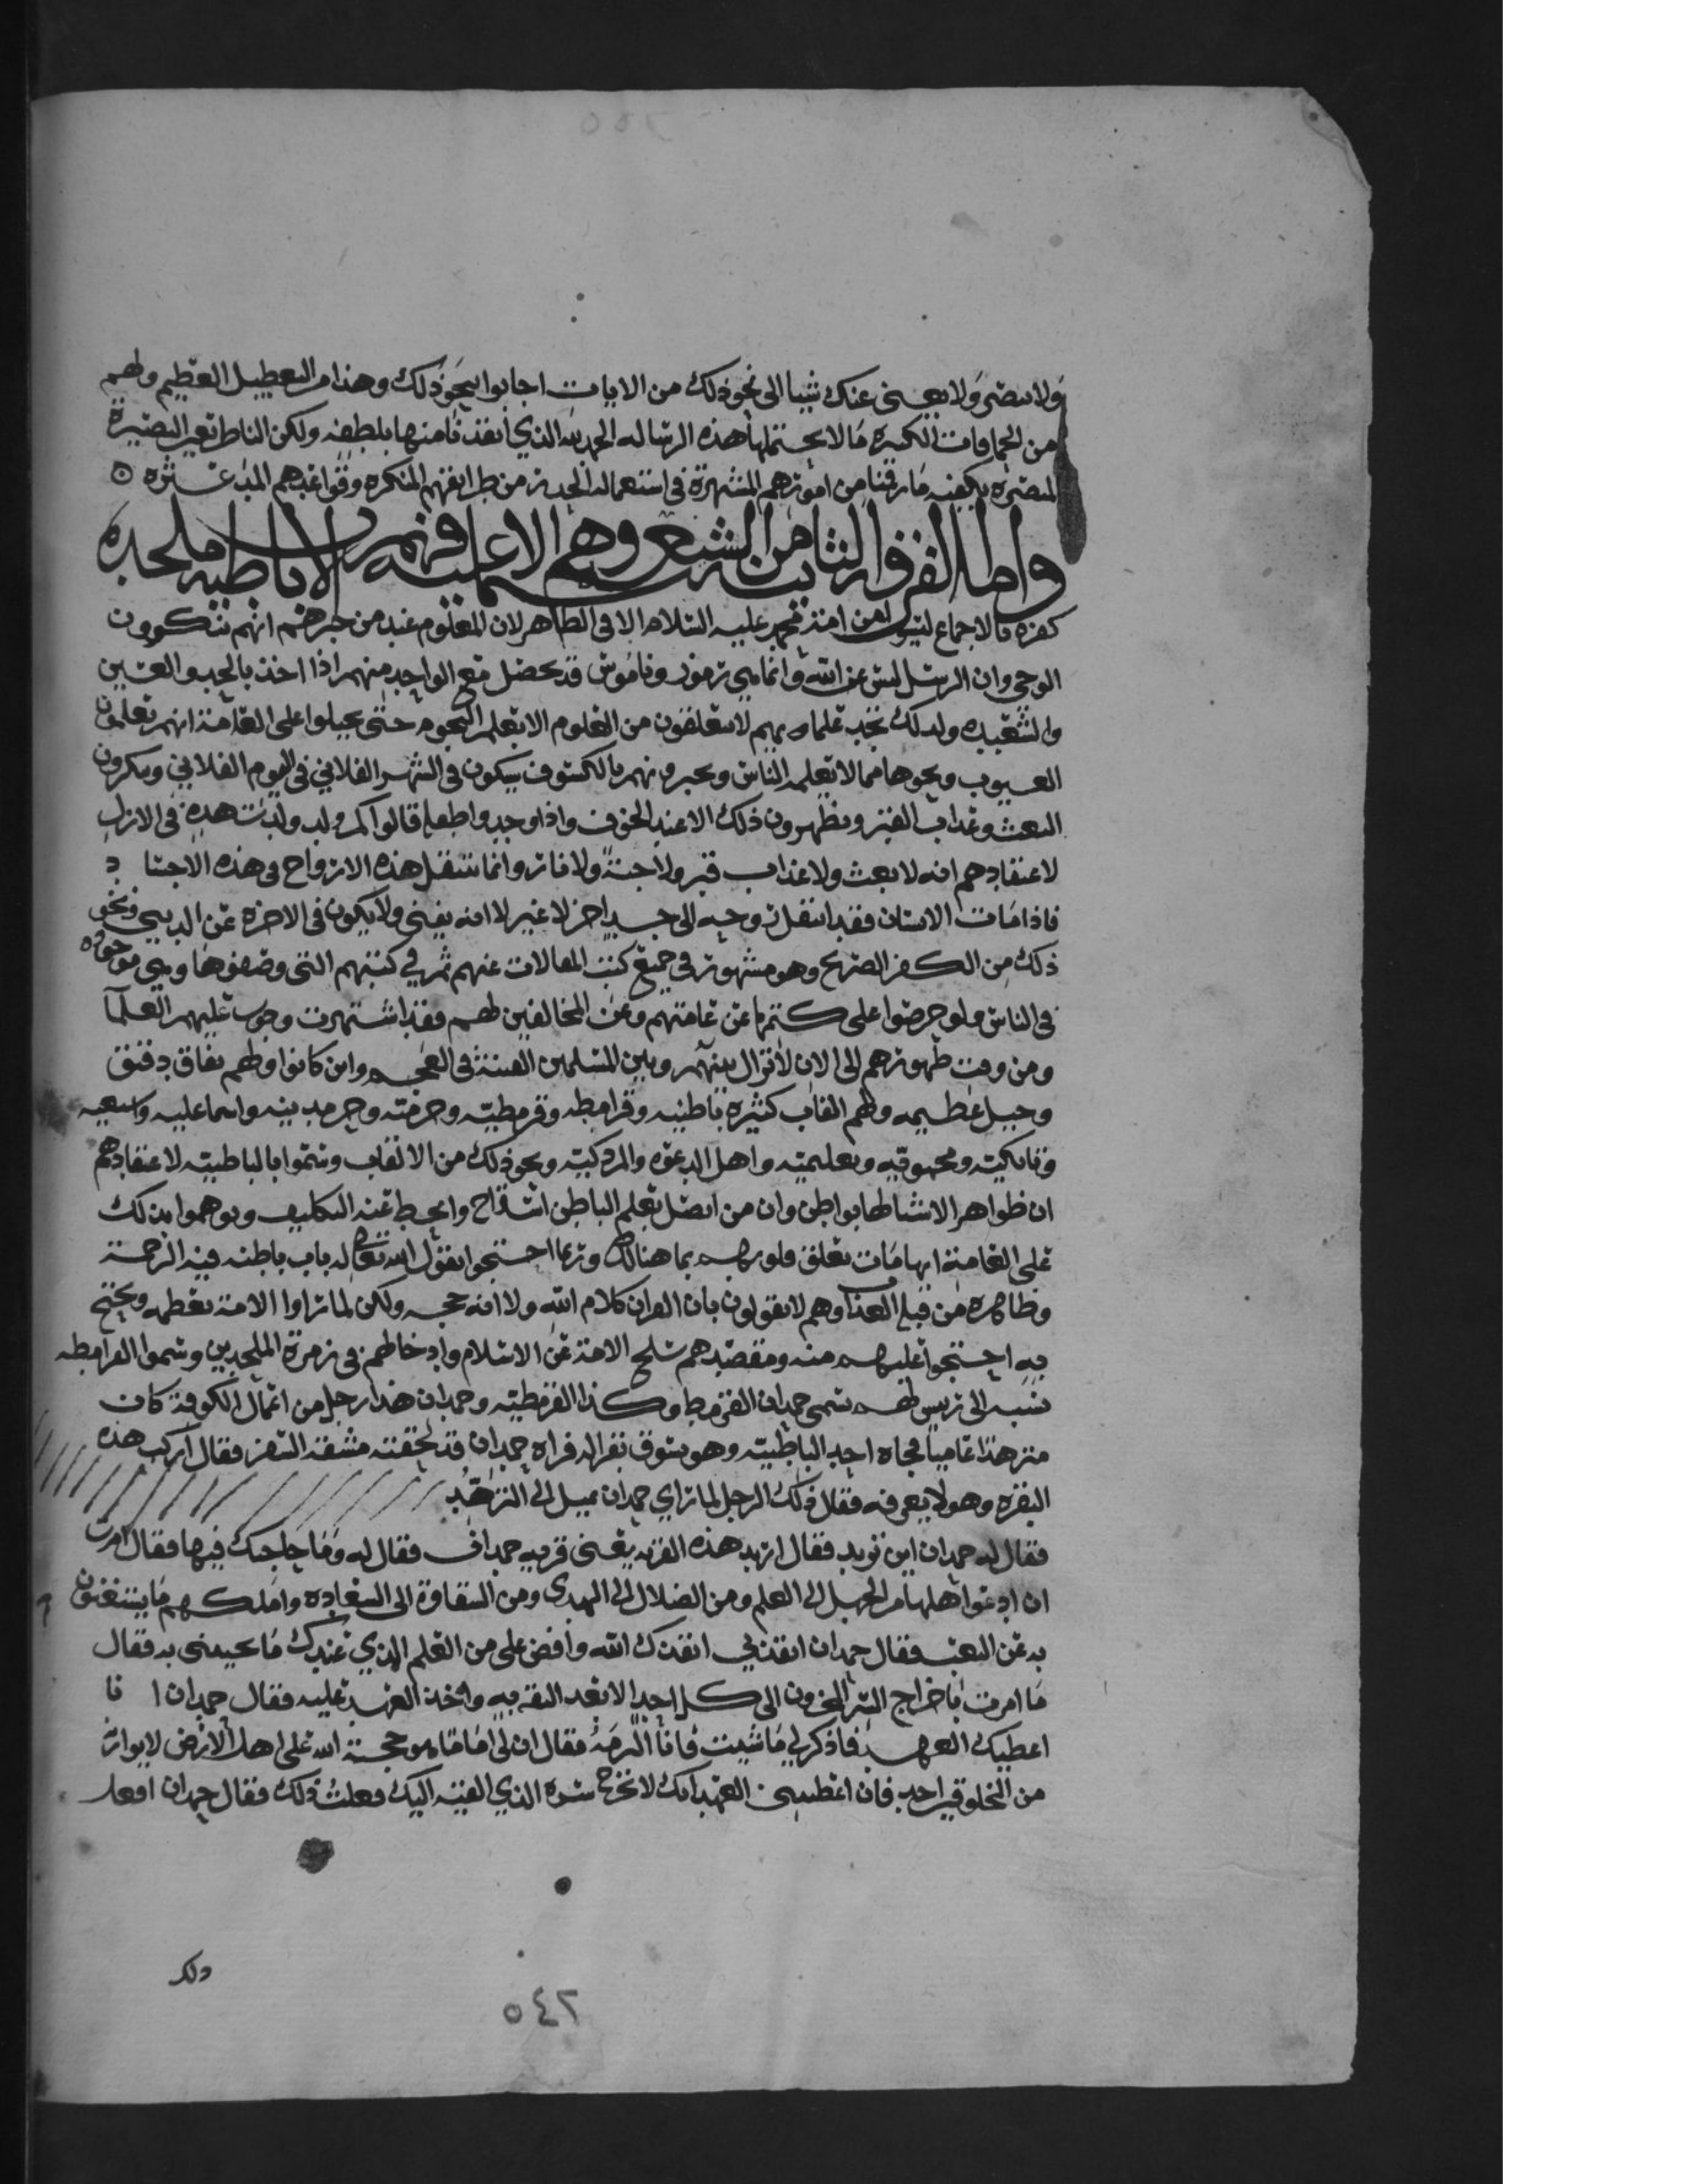 ولا يبصر ولا يغني عنك شيا الى نحو ذلك من الايات اجابوا بنحو ذلك وهذا من التعطيل العظيم ولهم
من الحماقات الكبيره ما لا يحتملها هذه الرساله الحمد لله الذي انقذنا منها بلطفه ولكن الناظر بعين البصيرة
يكفيه ما رقنا من امورهم المشتهرة في استعمالنا من طرايقهم المنكره وقواعدهم
واما الفرقه الثانيه من الشيع وهم الاسماعيليه الباطنيه فهم ملحده
كفره بالاجماع ليسوا من امة محمد عليه السلام الا في الظاهر لان المعلوم عند من خبرهم انهم ينكرون
الوحي وان الرسل ليس عن الله وانما هي رموز وناموس قد يحصل مع الواحد منهم اذا اخذ بالجد والعين
والشعبده ولذلك تجد علماهم لا يتعلقون من العلوم الا بعلم النجوم حتى يحيلوا على العامة انهم يعلمون
الغيوب ونحوها مما لا يعلمه الناس ويخبرونهم بالكسوف سيكون في الشهر الفلاني في اليوم الفلاني وينكرون
البعث وعذاب القبر ويظهرون ذلك الا عند الخوف واذا وجدوا طفلا قالوا كم ولد ولدت هذه في الازل
لاعتقادهم انه لا بعث ولا عذاب قبر ولا جنة ولا نار وانما تنتقل هذه الارواح في هذه الاجساد
فاذا مات الانسان فقد انتقلت روحه الى جسد اخر لا غير لا انه يفنى ولا يكون في الاخرة عن الدنيى ونحو
ذلك من الكفر الصريح وهو مشهور في جميع كتب المقالات عنهم ثم في كتبهم التي وصفوها وهي موجوده
في الناس ولو حرصوا على كتمها عن عامتهم وعن المخالفين لهم فقد اشتهرت عليهم العلما
ومن وقت ظهورهم الى الان لا تزال بينهم وبين المسلمين الفتنة في العجم واين كانوا ولهم نفاق دقيق
وحيل عظيمه ولهم القاب كثيرة باطنيه وقرامطه وقرمطيه وخرميه واسماعيليه وسبعيه
وبابكيه ومحمره وتعليميه واهل الدعوه والمزدكيه ونحو ذلك من الالقاب وسموا بالباطنيه لاعتقادهم
ان ظواهر الاشيا لها بواطن وان من اتصل بعلم الباطن استراح وانحط عنه التكليف ويوهموا بذلك
على العامة ايهامات تعلق قلوبهم بما هنالك وربما احتجوا بقول الله تعالى له باب باطنه فيه الرحمة
وظاهره من قبله العذاب وهم لا يقولون بان القران كلام الله ولا انه حجه ولكن لما راوا الامة تعظمه وتحتج
به احتجوا عليهم منه ومقصدهم سلخ الامة عن الاسلام وادخالهم في زمرة الملحدين وسموا القرامطه
نسبه الى رييس لهم يسمى حمدان القرمط وكذا القرمطيه وحمدان هذا رجل من اعمال الكوفة كان
متزهدا عاميا فجاه احد الباطنيه وهو يسوق بقرا له فراه حمدان قد لحقته مشقة السفر فقال اركب هذه
البقره وهو لا يعرفه فقال ذلك الرجل لما راى حمدان يميل الى التزهد
فقال له حمدان اين تريد فقال اريد هذه القريه يعني قريه حمدان فقال له وما حاجتك فيها فقال امرت
ان ادعوا اهلها من الجهل الى العلم ومن الضلال الى الهدى ومن الشقاوة الى السعاده واملكهم ما يستغنون
به عن التعب فقال حمدان انقذني انقذك الله وافض علي من العلم الذي عندك ما تحييني به فقال
ما امرت باخراج السر المخزون الى كل احد الا بعد الثقه به واخذ العهد عليه فقال حمدان انا
اعطيك العهد فاذكر لي ما شيت فانا التزمه فقال ان لي اماما هو حجة الله على اهل الارض لا يوازيه
من المخلوقين احد فان اعطيتني العهد انك لا تخرج سره الذي القيه اليك فعلت ذلك فقال حمدان افعل
ذلك
٥٤٢